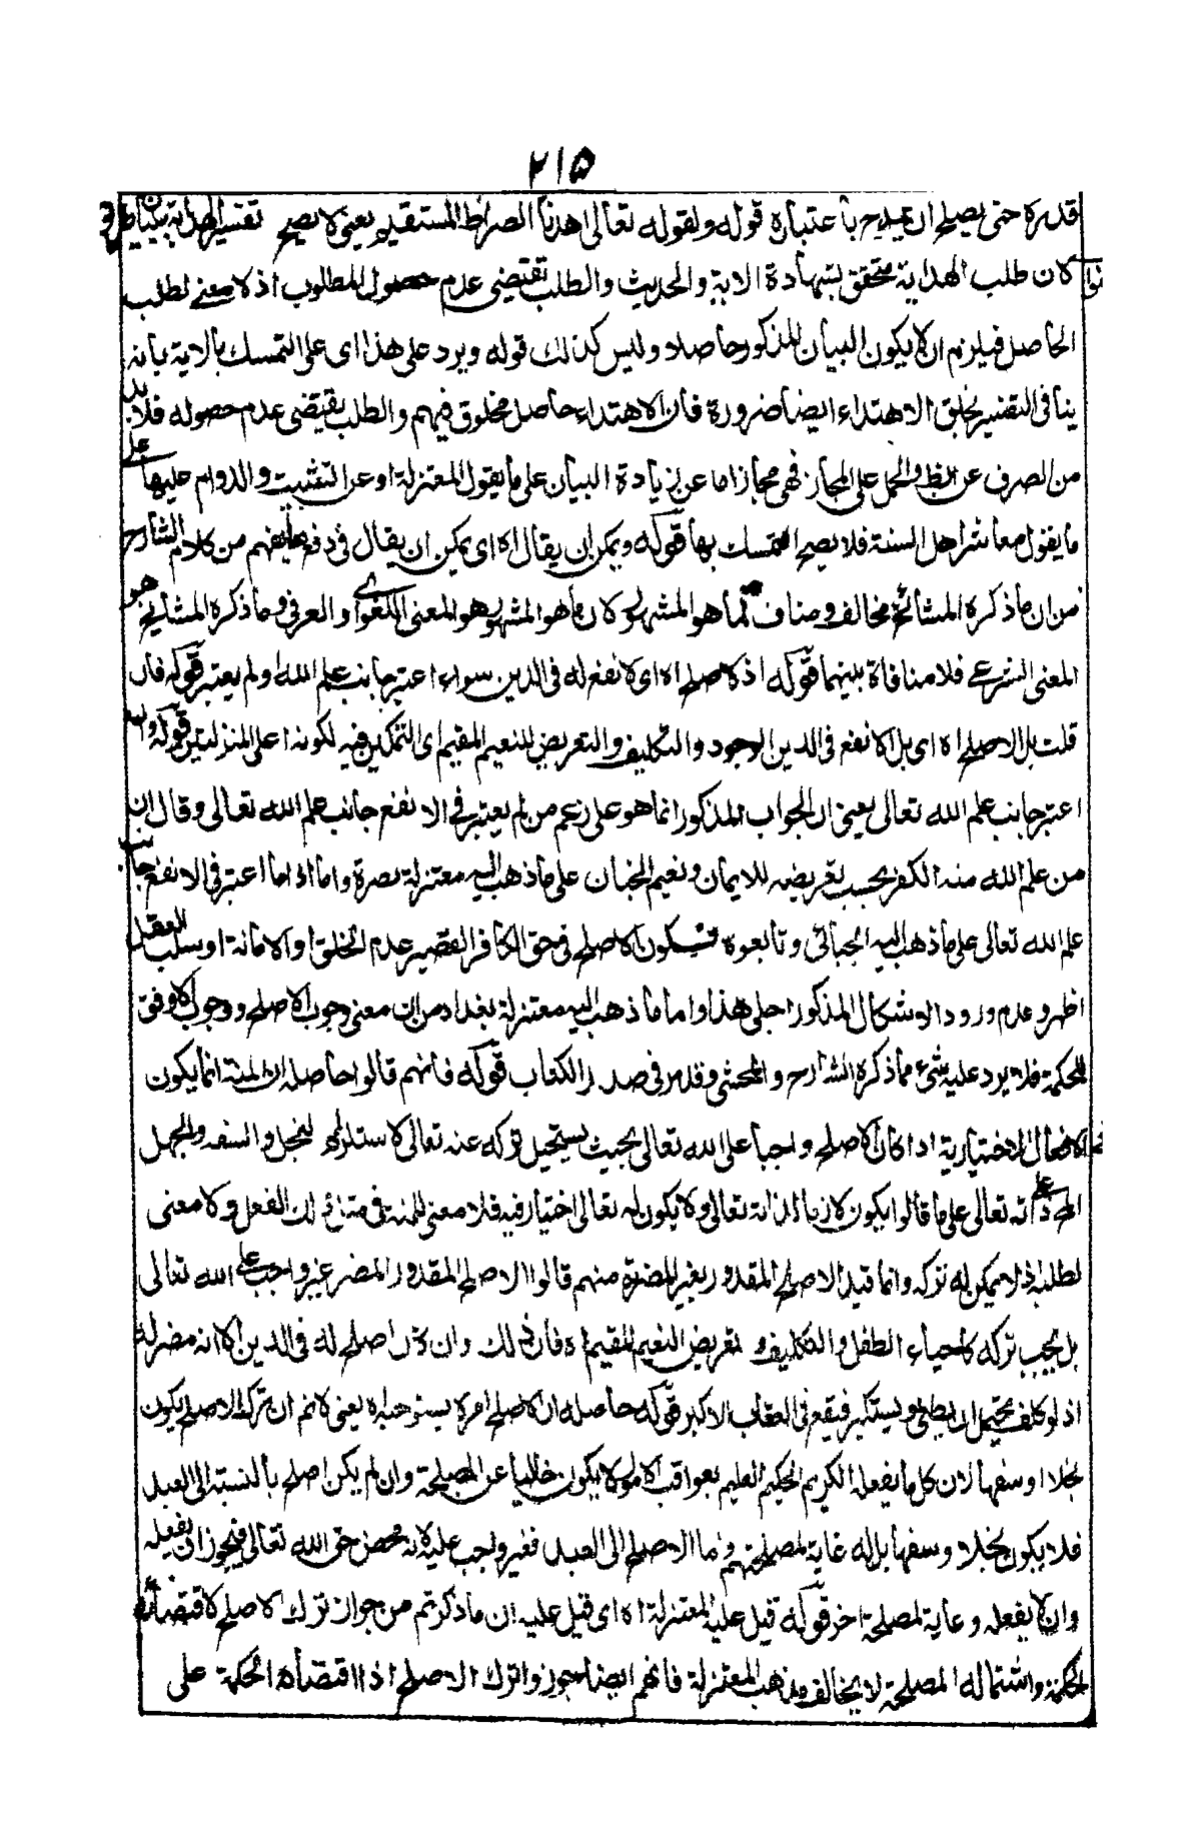 ٢١٥
قدره حتى يصلح ان يمدح باعتباره قوله ولقوله تعالى اهدنا الصراط المستقيم يعنى لا يصح تفسير الهداية ببيان طريق
كان طلب الهداية متحقق بشهادة الاية والحديث والطلب تقتضى عدم حصول المطلوب اذ لا معنى لطلب
الحاصل فيلزم ان لا يكون البيان المذكور حاصلا وليس كذلك قوله ويرد على هذا اى على التمسك بالاية بانه
ينافى التفسير بخلق الاهتداء ايضا ضرورة فان الاهتداء حاصل مخلوق فيهم والطلب يقتضى عدم حصوله فلا بد
من الصرف عن الظ والحمل على المجاز فهى مجاز اما عن زيادة البيان على ما يقول المعتزلة او عن التثبيت والدوام عليها على
ما يقول معاشر اهل السنة فلا يصح التمسك بها قوله ويمكن ان يقال اه اى يمكن ان يقال فى دفع ما يفهم من كلام الشارح
من ان ما ذكره المشائخ مخالف ومناف لما هو المشهور لو كان ما هو المشهور هو المعنى اللغوى او العرفى وما ذكره المشايخ هو
المعنى الشرعى فلا منافاة بينهما قوله اذ الاصلح اه اى الانفع له فى الدين سواء اعتبر جانب علم الله او لم يعتبر قوله فان
قلت بل الاصلح اه اى بل الانفع فى الدين الوجود والتكليف والتعريض للنعيم المقيم اى التمكين فيه لكونه اعلى المنزلتين قوله وانه
اعتبر جانب علم الله تعالى يعنى ان الجواب المذكور انما هو على زعم من لم يعتبر فى الانفع جانب علم الله تعالى وقال ان
من علم الله منه الكفر يجب تعريضه للايمان ونعيم الجنان على ما ذهب اليه معتزلة بصرة واما اذا ما اعتبر فى الانفع جانب
علم الله تعالى على ما ذهب اليه الجبائى وتابعوه فيكون الاصلح فى حق الكافر الفقير عدم الخلق او الاماتة او سلب العقل
اظهر وعدم ورود الاشكال المذكور اجلى هذا واما ما ذهب اليه معتزلة بغداد من ان معنى وجوب الاصلح ووجوب الاوفق
للحكمة فلا يرد عليه شىء مما ذكره الشارح والمحشى وقد مر فى صدر الكتاب قوله فانهم قالوا حاصله ان المنة انما يكون
فى الافعال الاختيارية اذا كان الاصلح واجبا على الله تعالى بحيث يستحيل تركه عنه تعالى لاستلزام البخل والسفه والجهل
المح على ذاته تعالى على ما قالوا يكون لازما لذاته تعالى ولا يكون له تعالى اختيار فيه فلا معنى للمنة فى مثل ذلك الفعل ولا معنى
لطلبه اذ لا يمكن له تركه وانما قيد الاصلح المقدور بغير المضر منهم قالوا الاصلح المقدور المضر غير واجب على الله تعالى
بل يجب تركه كاحياء الطفل والتكليف و تعريض النعيم المقيم اه فان ذلك وان كان اصلح له فى الدين الا انه مضر له
اذ لو كلف يحتمل ان يطغى ويستكبر فيقع فى العقاب الاكبر قوله حاصله ان الاصلح امر لا يستوجبه اه يعنى لا نم ان ترك الاصلح يكون
بخلا او سفها لان كل ما يفعله الكريم الحكيم العليم بعواقب الامور لا يكون خاليا عن المصلحة وان لم يكن اصلح بالنسبة الى العبد
فلا يكون بخلا وسفها بل له غاية لمصلحتهم واما الاصلح الى العبد فغير واجب عليه لانه محض حق الله تعالى فيجوز ان يفعله
وان لا يفعله رعاية لمصلحة اخر قوله قيل عليه المعتزلة اه اى قيل عليه ان ما ذكرتم من جواز ترك الاصلح لاقتضاء
الحكمة واشتماله المصلحة لا يخالف مذهب المعتزلة فانهم ايضا جوزوا ترك الاصلح اذا اقتضاه الحكمة على